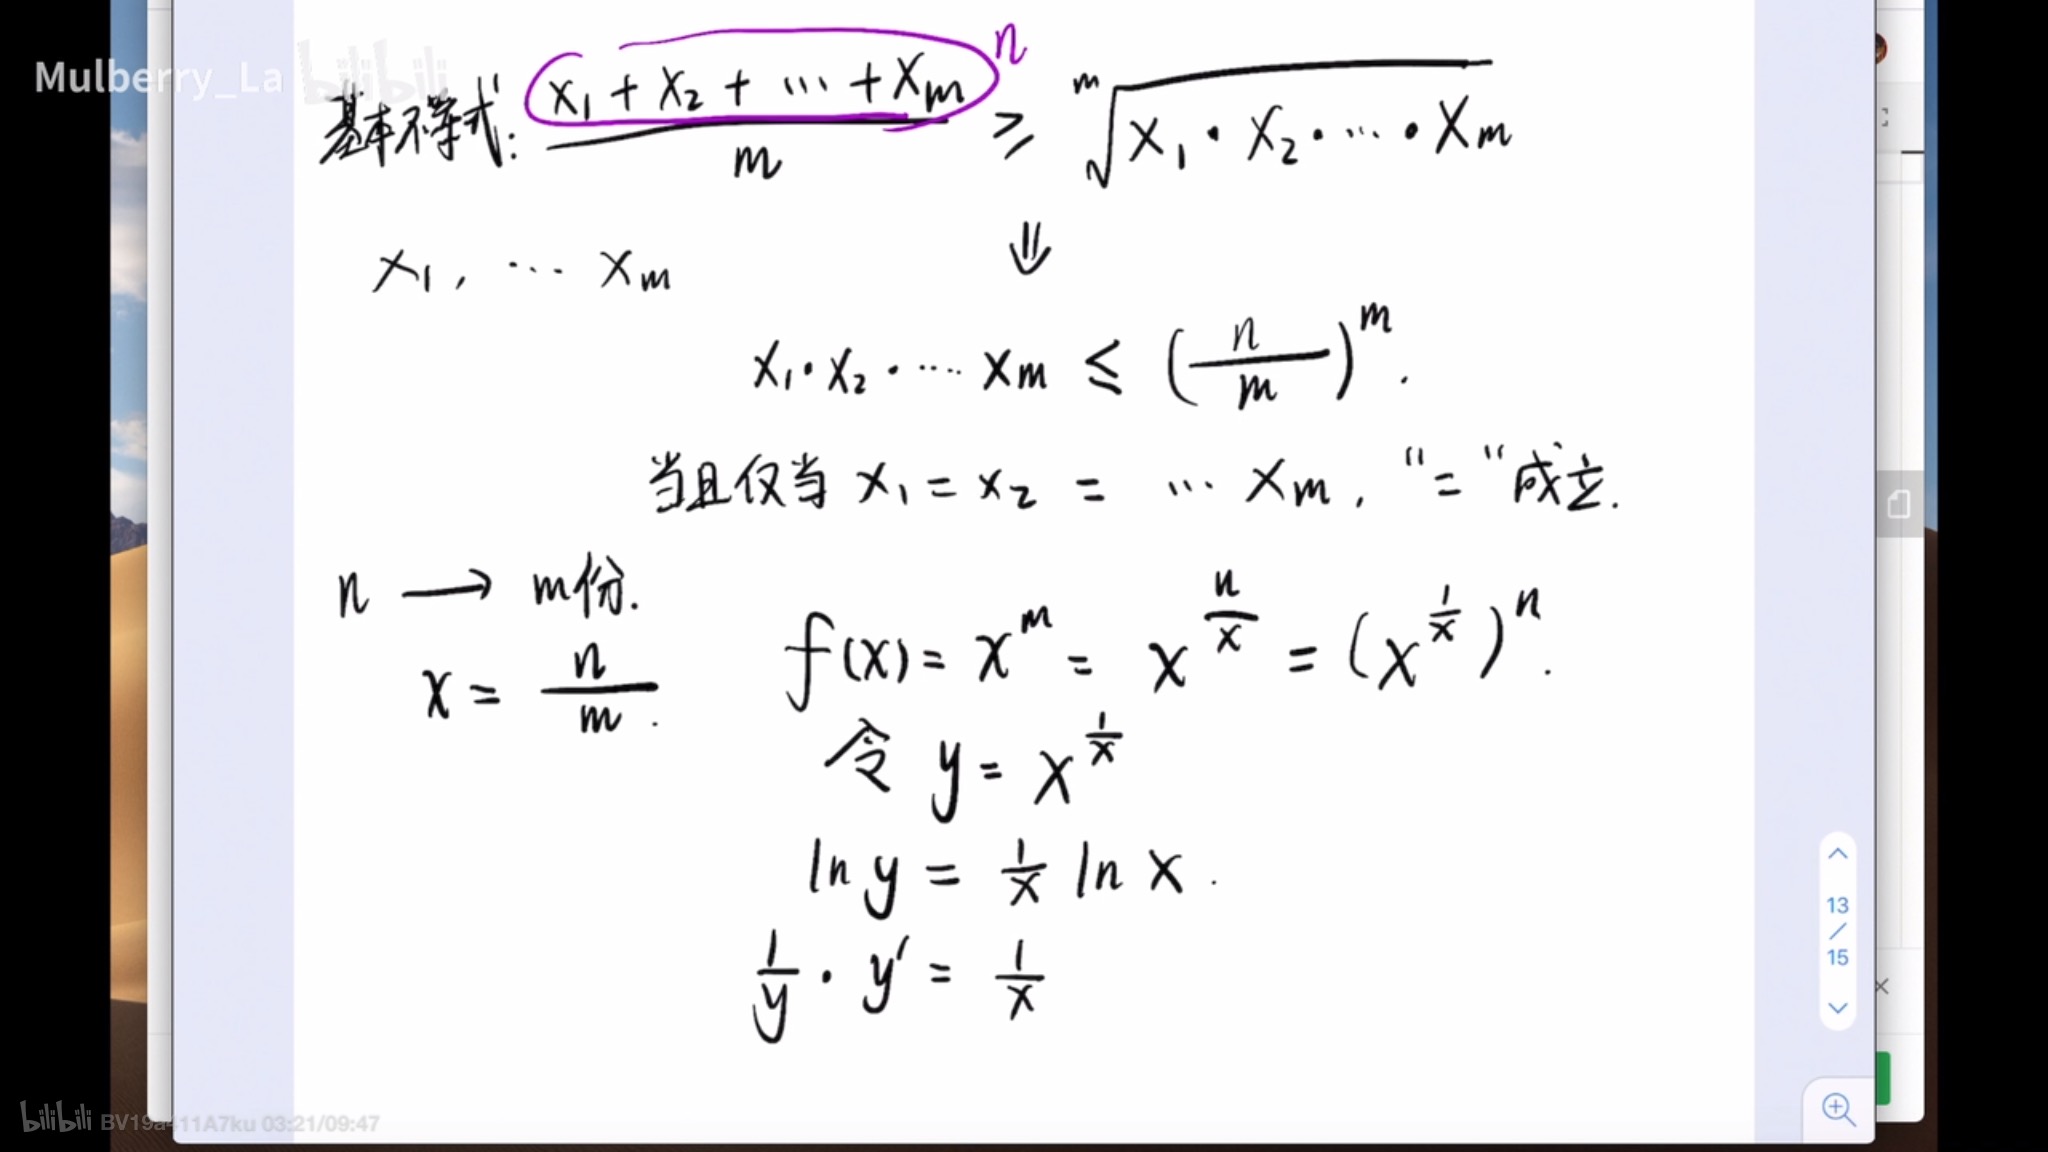 Mulberry_La bilibili
n
基本不等式: (x₁ + x₂ + ⋯ + xₘ)/m ≥ ᵐ√(x₁ · x₂ · ⋯ · xₘ)
x₁, ⋯ xₘ
⇓
x₁ · x₂ · ⋯ xₘ ≤ (n/m)ᵐ.
当且仅当 x₁ = x₂ = ⋯ xₘ, "=" 成立.
n → m份.
x = n/m.
f(x) = x^m = x^(n/x) = (x^(1/x))^n.
令 y = x^(1/x)
ln y = 1/x ln x.
1/y · y' = 1/x
13
/
15
bilibili BV19a411A7ku 03:21/09:47